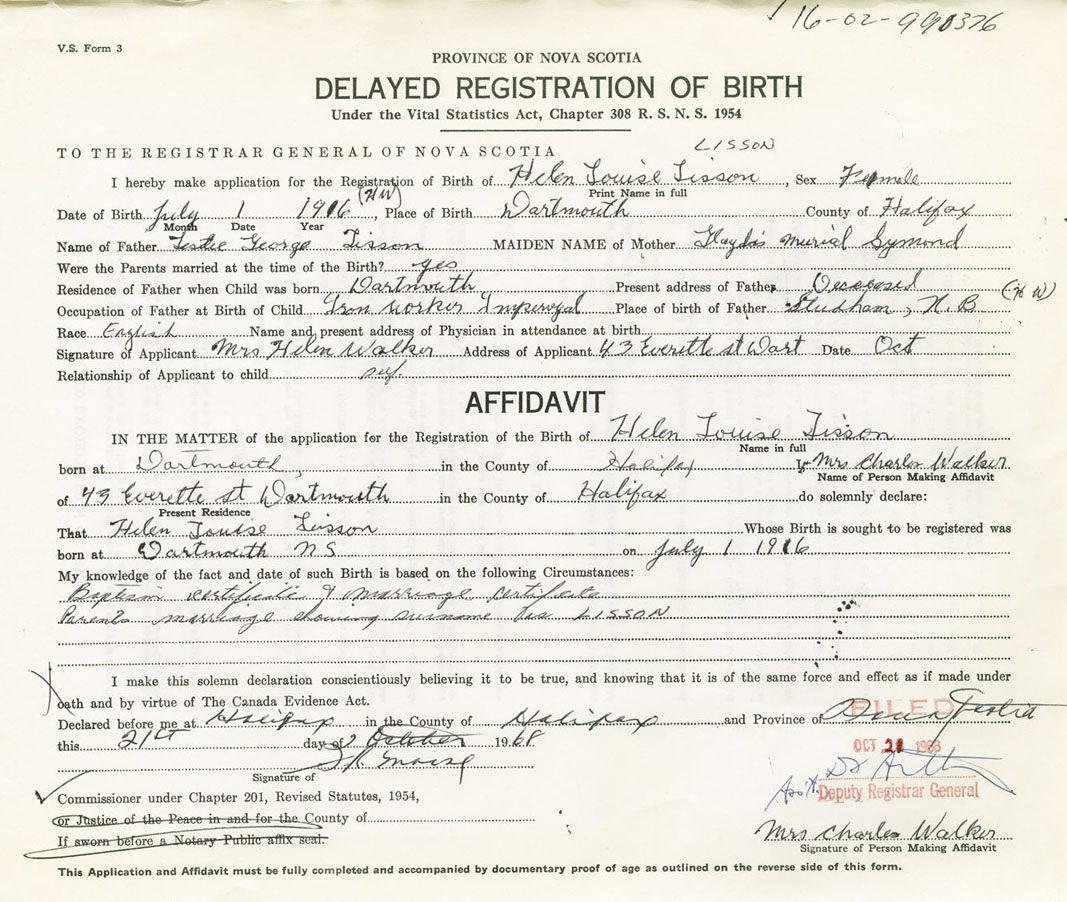 16-02-990376
V.S. Form 3
PROVINCE OF NOVA SCOTIA
DELAYED REGISTRATION OF BIRTH
Under the Vital Statistics Act, Chapter 308 R. S. N. S. 1954
LISSON
TO THE REGISTRAR GENERAL OF NOVA SCOTIA
I hereby make application for the Registration of Birth of Helen Louise Lisson, Sex Female
Print Name in full
(HW)
Date of Birth July 1 1916, Place of Birth Dartmouth County of Halifax
Month Date Year
Name of Father Leslie George Lisson MAIDEN NAME of Mother Glaydis Murial Symond
Were the Parents married at the time of the Birth? yes
Residence of Father when Child was born Dartmouth Present address of Father Deceased
(HW)
Occupation of Father at Birth of Child Iron worker Imperoyal Place of birth of Father N.B
Race English Name and present address of Physician in attendance at birth
Signature of Applicant Mrs Helen Walker Address of Applicant 43 Everette st Dart Date Oct
Relationship of Applicant to child self.
AFFIDAVIT
IN THE MATTER of the application for the Registration of the Birth of Helen Louise Lisson
Name in full
born at Dartmouth, in the County of Halifax I, Mrs Charles Walker
Name of Person Making Affidavit
of 43 Everette st Dartmouth in the County of Halifax do solemnly declare:
Present Residence
That Helen Louise Lisson Whose Birth is sought to be registered was
born at Dartmouth NS on July 1 1916
My knowledge of the fact and date of such Birth is based on the following Circumstances:
Baptism certificate & marriage certificate
Parents marriage showing surname as LISSON
I make this solemn declaration conscientiously believing it to be true, and knowing that it is of the same force and effect as if made under
oath and by virtue of The Canada Evidence Act.
Declared before me at Halifax in the County of Halifax and Province of Nova Scotia
FILED
this 21st day of October 1968
OCT 21 1968
Signature of
Deputy Registrar General
Commissioner under Chapter 201, Revised Statutes, 1954,
or Justice of the Peace in and for the County of
Mrs Charles Walker
If sworn before a Notary Public affix seal.
Signature of Person Making Affidavit
This Application and Affidavit must be fully completed and accompanied by documentary proof of age as outlined on the reverse side of this form.